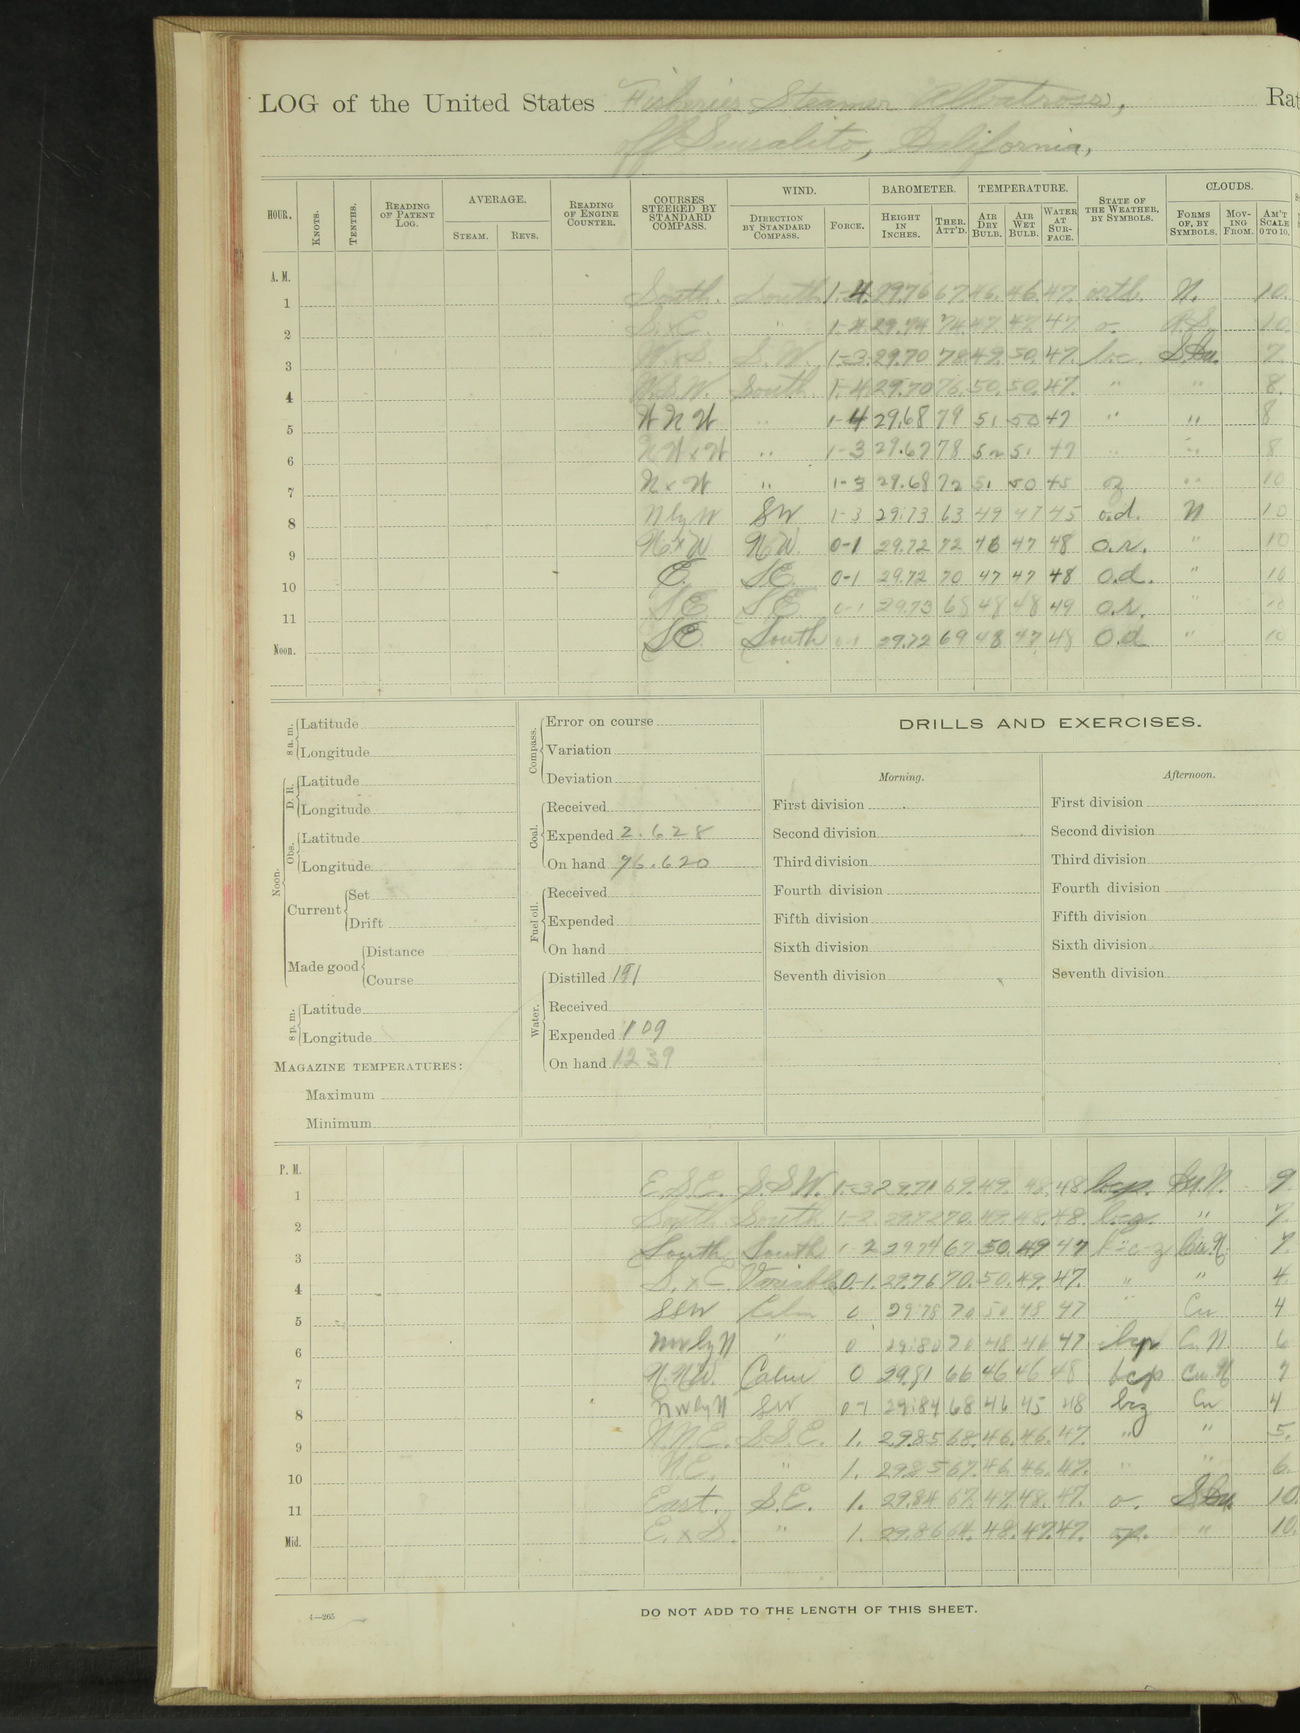 LOG of the United States Fisheries Steamer Albatross, Rat
off Sausalito, California,
HOUR. KNOTS. TENTHS. READING OF PATENT LOG. AVERAGE. STEAM. REVS. READING OF ENGINE COUNTER. COURSES STEERED BY STANDARD COMPASS. WIND. DIRECTION BY STANDARD COMPASS. FORCE. BAROMETER. HEIGHT IN INCHES. THER. ATT'D. TEMPERATURE. AIR DRY BULB. AIR WET BULB. WATER AT SURFACE. STATE OF THE WEATHER, BY SYMBOLS. CLOUDS. FORMS OF, BY SYMBOLS. MOVING FROM. AM'T SCALE 0 TO 10.
A. M.
1 South. South 1-4 29.76 67. 46. 46. 47. N. 10.
2 S.xE. " 29.74 74. 47. 47. 47. o. 10.
3 W.xS. S.W. 1-3. 29.70 78. 49. 50. 47. b.c. S.Cu. 7.
4 W.S.W. South 1-4. 29.70 76. 50. 50. 47. " " 8.
5 WNW " 1-4 29.68 79 51 50 47 " " 8
6 NWxW " 1-3 29.67 78 52 51 47 " " 8
7 NxW " 1-3 29.68 72 51 50 45 oz " 10
8 N by W SW 1-3 29.73 63 49 47 45 o.d. N 10
9 NxW N.W. 0-1 29.72 72 48 47 48 o.r. " 10
10 E. SE 0-1 29.72 70 47 47 48 o.d. " 10
11 SE SE 0-1 29.73 68 48 48 49 o.r. " 10
Noon. SE South 0-1 29.72 69 48 47 48 o.d " 10
8 a. m. Latitude
Longitude
Noon. D. R. Latitude
Longitude
Obs. Latitude
Longitude
Current Set
Drift
Made good Distance
Course
8 p. m. Latitude
Longitude
MAGAZINE TEMPERATURES:
Maximum
Minimum
Compass. Error on course
Variation
Deviation
Coal. Received
Expended 2.628
On hand 96.620
Fuel oil. Received
Expended
On hand
Water. Distilled 191
Received
Expended 109
On hand 1239
DRILLS AND EXERCISES.
Morning. Afternoon.
First division First division
Second division Second division
Third division Third division
Fourth division Fourth division
Fifth division Fifth division
Sixth division Sixth division
Seventh division Seventh division
P. M.
1 E.S.E. S.S.W. 1-3 29.71 69. 49. 48. 48 b.c.p. Cu.N. 9.
2 South South 1-2 29.72 70. 49. 48. 48. " 7.
3 South South 1-2 29.74 67 50. 49 47 b-c-z Cu.N. 7.
4 S.xE. Variable 0-1. 29.76 70. 50. 49. 47. " " 4.
5 SSW Calm 0 29.78 70 50 48 47 " Cu 4
6 NW by N " 0 29.80 70 48 46 47 bcp Cu N 6
7 N.N.W. Calm 0 29.81 66 46 46 48 bcp Cu.N 7
8 NW by N SW 0-1 29.84 68 46 45 48 bcz Cu 4
9 N.N.E. S.S.E. 1. 29.85 68. 46. 46. 47. " " 5.
10 N.E. " 1. 29.85 67. 46. 46. 47. " " 6.
11 East. S.E. 1. 29.84 67. 47. 48. 47. o. S.Cu. 10.
Mid. E.xS. " 1. 29.86 64. 48. 47. 47. o.p. " 10.
4—265
DO NOT ADD TO THE LENGTH OF THIS SHEET.